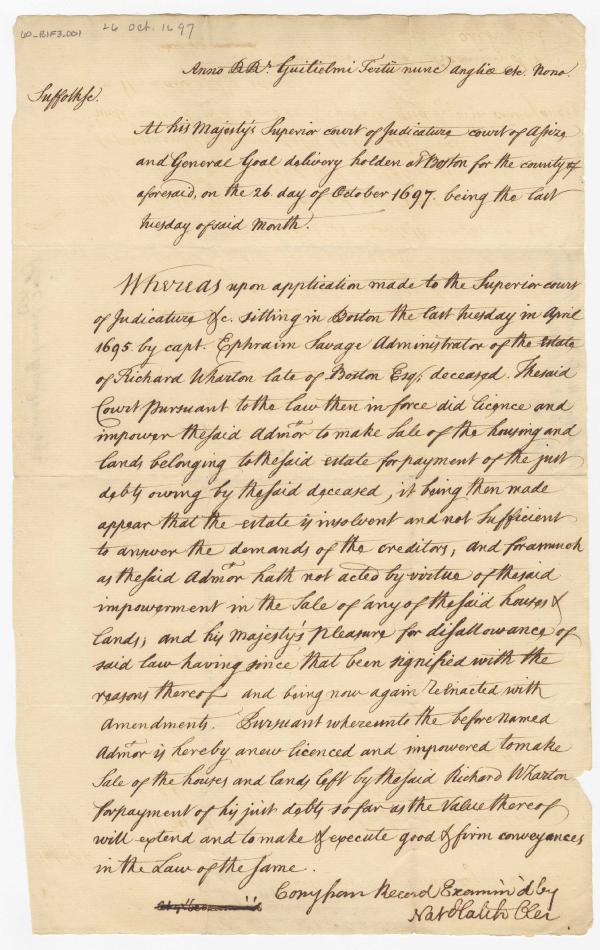 60-B1F3.001 26 Oct. 1697
Anno RRs. Guilielmi Tertii nunc angliæ &c. Nono.
Suffolk sc.
At his Majesty's Superior court of Judicature court of Assize
and General Goal delivery holden at Boston for the county of
aforesaid, on the 26 day of October 1697. being the last
tuesday of said Month.
Whereas upon application made to the Superior court
of Judicature &c. sitting in Boston the last tuesday in April
1695 by capt. Ephraim Savage Administrator of the estate
of Richard Wharton late of Boston Esq, deceased. The said
Court pursuant to the law then in force did licence and
impower the said Admor to make Sale of the housing and
lands belonging to the said estate for payment of the just
debts owing by the said deceased, it being then made
appear that the estate is insolvent and not Sufficient
to answer the demands of the creditors, and forasmuch
as the said Admor hath not acted by virtue of the said
impowerment in the Sale of any of the said houses &
lands; and his Majesty's pleasure for disallowance of
said law having since that been signified with the
reasons thereof and being now again Reinacted with
amendments. Pursuant whereunto the before named
Admor is hereby anew licenced and impowered to make
Sale of the houses and lands left by the said Richard Wharton
for payment of his just debts so far as the Value thereof
will extend and to make & execute good & firm conveyances
in the Law of the Same.
Copy from Record Examin'd by
Nat Hatch Cler